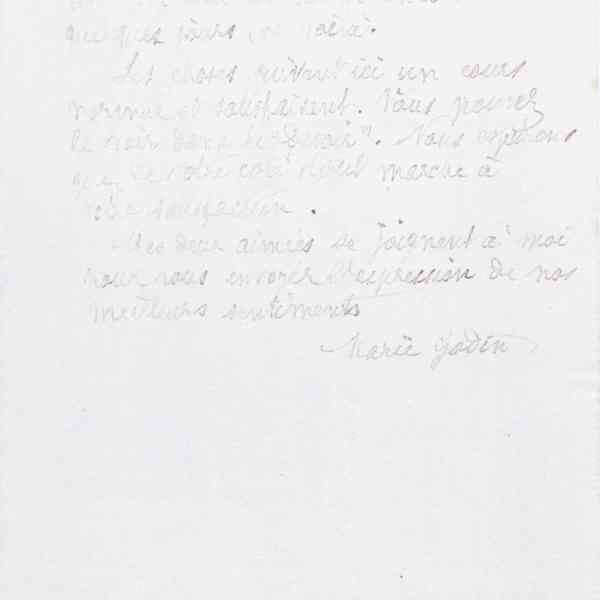 quelques jours, ce soir.
Les choses suivent ici un cours
normal et satisfaisant. Vous pouvez
le voir dans le "Devoir". Nous espérons
que de votre coté tout marche à
votre satisfaction.
Mes deux aimées se joignent à moi
pour vous envoyer l'expression de nos
meilleurs sentiments
Marie Godin